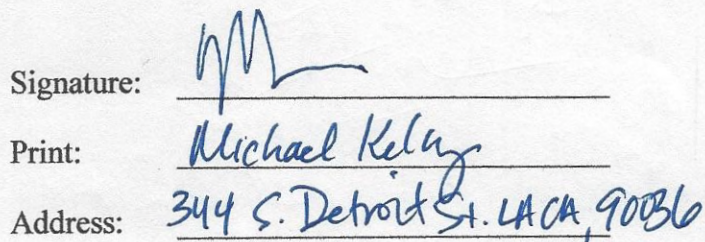 Signature:
Print: Michael
Address: 344 S. Detroit St. LA CA, 90036